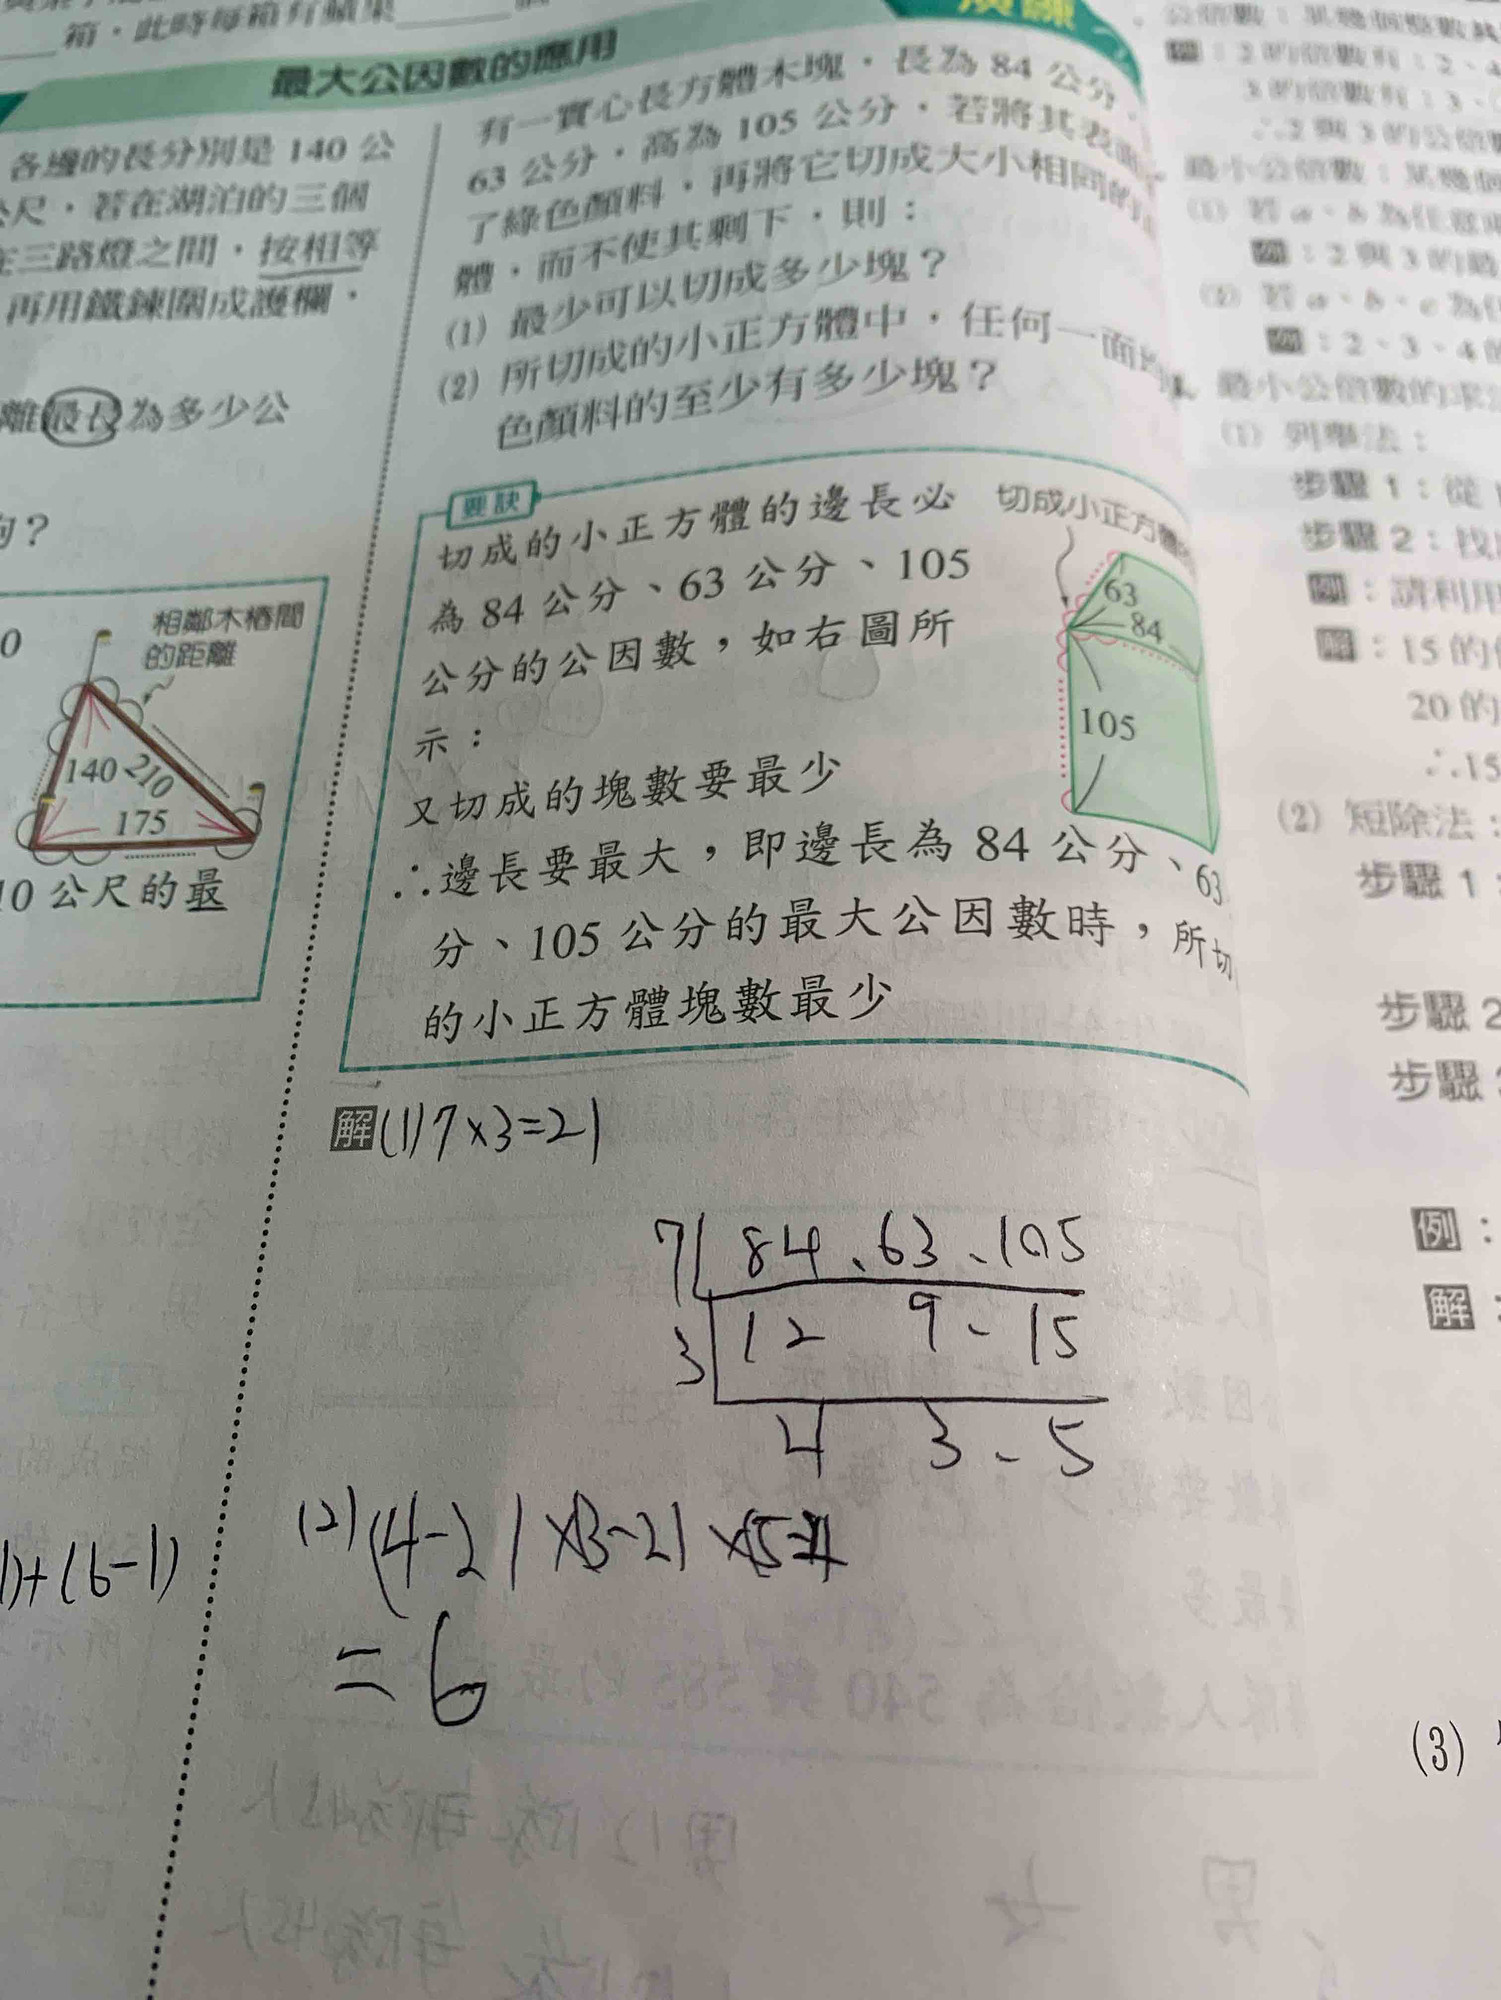 箱，此時每箱有蘋果
最大公因數的應用
各邊的長分別是 140 公
尺，若在湖泊的三個
三路燈之間，按相等
再用鐵鍊圍成護欄，
離最長為多少公
？
0
相鄰木樁間
的距離
140 210
175
10 公尺的最
1)+(6-1)
有一實心長方體木塊，長為 84 公分，
63 公分，高為 105 公分，若將其表面
了綠色顏料，再將它切成大小相同的
體，而不使其剩下，則：
(1) 最少可以切成多少塊？
(2) 所切成的小正方體中，任何一面均
色顏料的至少有多少塊？
要訣
切成的小正方體的邊長必
為 84 公分、63 公分、105
公分的公因數，如右圖所
示：
又切成的塊數要最少
∴邊長要最大，即邊長為 84 公分、63
分、105 公分的最大公因數時，所切
的小正方體塊數最少
切成小正方體
63
84
105
解(1)7×3=21
7 84、63、105
3 12 9、15
4 3、5
=6
公倍數：某幾個整數共
例：2 的倍數有：2、4
3 的倍數有：3、
∴2 與 3 的公倍數
最小公倍數：某幾個
(1) 若 a、b 為任意
例：2 與 3 的最
(2) 若 a、b、c 為任
例：2、3、4 的
最小公倍數的求法
(1) 列舉法：
步驟 1：從
步驟 2：找
例：請利用
解：15 的倍
20 的
∴15
(2) 短除法：
步驟 1：
步驟 2
步驟
例：
解：
(3)